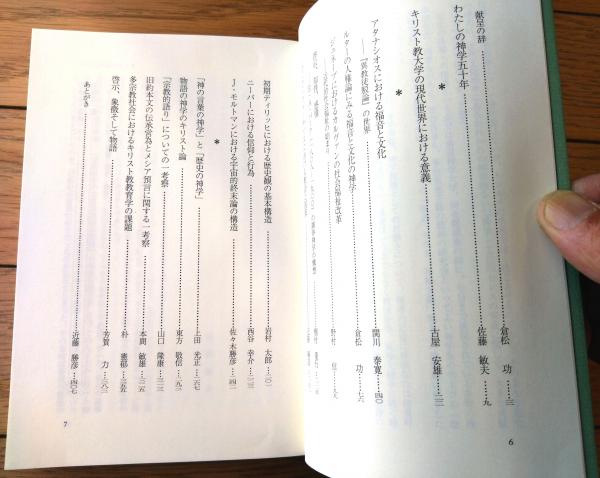 献呈の辞……倉松 功…三
わたしの神学五十年……佐藤 敏夫…九
*
キリスト教大学の現代世界における意義……古屋 安雄…二三
*
アタナシオスにおける福音と文化
──『異教徒駁論』の世界……関川 泰寛…四〇
ルターの人権論にみる福音と文化の神学……倉松 功…七六
ジュネーブにおけるカルヴァンの社会福祉改革……野村 信…
6
初期ティリッヒにおける歴史観の基本構造……岩村 太郎…二〇一
ニーバーにおける信仰と行為……西谷 幸介…二二三
J・モルトマンにおける宇宙的終末論の構造……佐々木勝彦…二四一
*
「神の言葉の神学」と「歴史の神学」……上田 光正…二六七
物語の神学のキリスト論……東方 敬信…二九二
「宗教的語り」についての一考察……山口 隆康…三一三
旧約本文の伝承営為とメシア預言に関する一考察……本間 敏雄…三三五
多宗教社会におけるキリスト教教育学の課題……朴 憲郁…三五五
啓示、象徴そして物語……芳賀 力…三八三
あとがき……近藤 勝彦…四〇七
7